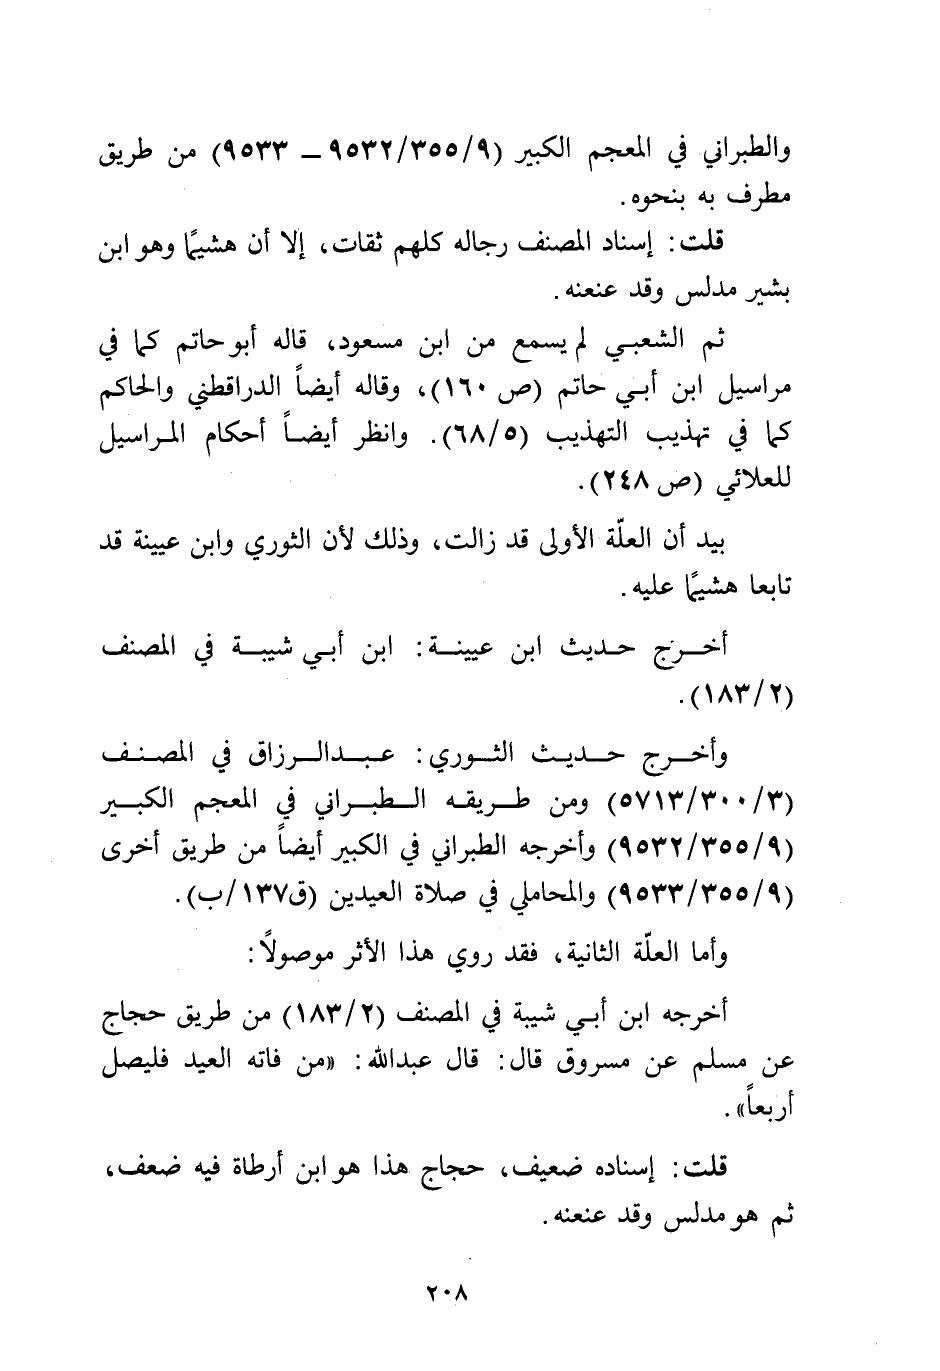 والطبراني في المعجم الكبير (٩/٣٥٥/٩٥٣٢ ــ ٩٥٣٣) من طريق
مطرف به بنحوه.
قلت: إسناد المصنف رجاله كلهم ثقات، إلا أن هشيمًا وهو ابن
بشير مدلس وقد عنعنه.
ثم الشعبي لم يسمع من ابن مسعود، قاله أبو حاتم كما في
مراسيل ابن أبي حاتم (ص ١٦٠)، وقاله أيضاً الدراقطني والحاكم
كما في تهذيب التهذيب (٥/٦٨). وانظر أيضاً أحكام المراسيل
للعلائي (ص ٢٤٨).
بيد أن العلّة الأولى قد زالت، وذلك لأن الثوري وابن عيينة قد
تابعا هشيمًا عليه.
أخرج حديث ابن عيينة: ابن أبي شيبة في المصنف
(٢/١٨٣).
وأخرج حديث الثوري: عبدالرزاق في المصنف
(٣/٣٠٠/٥٧١٣) ومن طريقه الطبراني في المعجم الكبير
(٩/٣٥٥/٩٥٣٢) وأخرجه الطبراني في الكبير أيضاً من طريق أخرى
(٩/٣٥٥/٩٥٣٣) والمحاملي في صلاة العيدين (ق١٣٧/ب).
وأما العلّة الثانية، فقد روي هذا الأثر موصولاً:
أخرجه ابن أبي شيبة في المصنف (٢/١٨٣) من طريق حجاج
عن مسلم عن مسروق قال: قال عبدالله: «من فاته العيد فليصل
أربعاً».
قلت: إسناده ضعيف، حجاج هذا هو ابن أرطاة فيه ضعف،
ثم هو مدلس وقد عنعنه.
٢٠٨